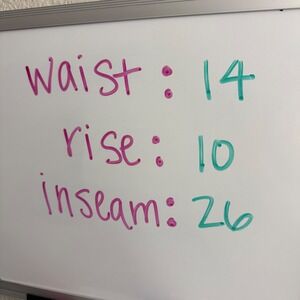 waist: 14
rise: 10
inseam: 26